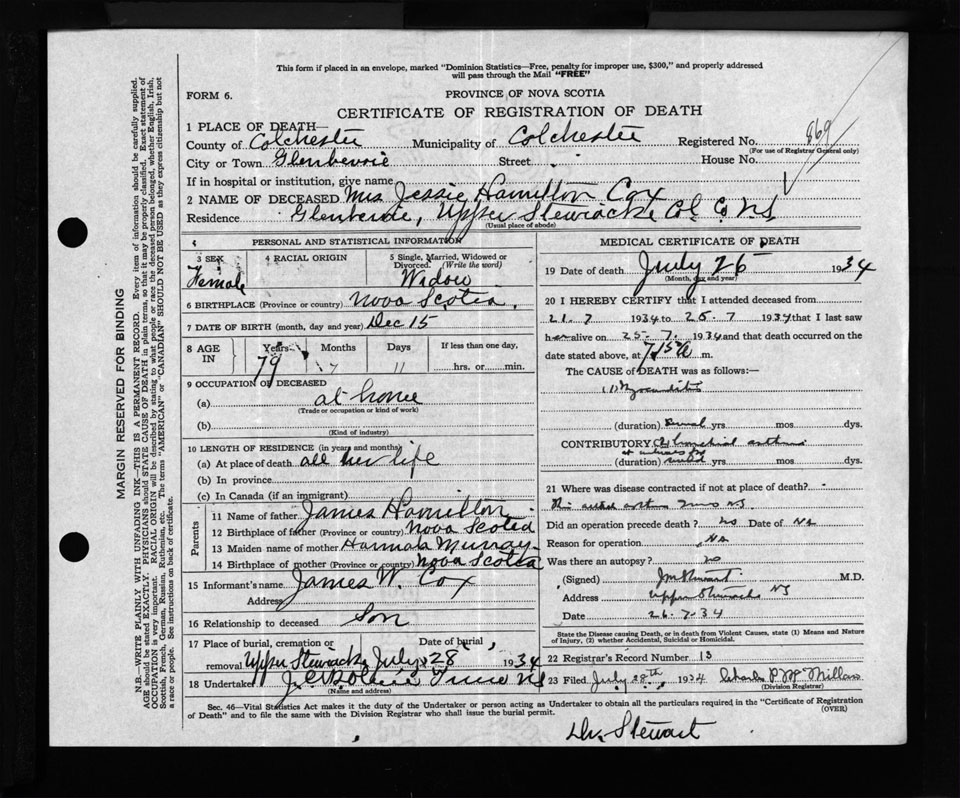 This form if placed in an envelope, marked "Dominion Statistics—Free, penalty for improper use, $300," and properly addressed
will pass through the Mail "FREE"
FORM 6.
PROVINCE OF NOVA SCOTIA
CERTIFICATE OF REGISTRATION OF DEATH
869
1 PLACE OF DEATH—
County of Colchester Municipality of Colchester Registered No.
(For use of Registrar General only)
City or Town Street House No.
If in hospital or institution, give name
2 NAME OF DECEASED Mrs Jessie Hamilton Cox
Residence Upper Stewiacke Col. Co. N.S.
(Usual place of abode)
PERSONAL AND STATISTICAL INFORMATION
3 SEX 4 RACIAL ORIGIN 5 Single, Married, Widowed or Divorced. (Write the word)
Female Widow
6 BIRTHPLACE (Province or country) Nova Scotia
7 DATE OF BIRTH (month, day and year) Dec 15
8 AGE IN Years Months Days If less than one day,
79 7 11 hrs. or min.
9 OCCUPATION OF DECEASED
(a) at home
(Trade or occupation or kind of work)
(b)
(Kind of industry)
10 LENGTH OF RESIDENCE (in years and months)
(a) At place of death all her life
(b) In province
(c) In Canada (if an immigrant)
Parents
11 Name of father James Hamilton
12 Birthplace of father (Province or country) Nova Scotia
13 Maiden name of mother Hannah Murray
14 Birthplace of mother (Province or country) Nova Scotia
15 Informant's name James W. Cox
Address
16 Relationship to deceased Son
17 Place of burial, cremation or removal Date of burial,
Upper Stewiacke July 28 1934
18 Undertaker Truro NS
(Name and address)
MEDICAL CERTIFICATE OF DEATH
19 Date of death July 25 1934
(Month, day and year)
20 I HEREBY CERTIFY that I attended deceased from
21.7 1934 to 25.7 1934 that I last saw
her alive on 25.7 1934 and that death occurred on the
date stated above, at 7.15 a m.
The CAUSE of DEATH was as follows:—
(1) Myocarditis
(duration) several yrs mos dys.
CONTRIBUTORY (2) bronchial asthma
(duration) yrs mos dys.
21 Where was disease contracted if not at place of death?
Did an operation precede death? no Date of NA
Reason for operation NA
Was there an autopsy? no
(Signed) M.D.
Address Upper Stewiacke NS
Date 26.7.34
State the Disease causing Death, or in death from Violent Causes, state (1) Means and Nature
of Injury, (2) whether Accidental, Suicidal or Homicidal.
22 Registrar's Record Number 13
23 Filed July 28th, 1934 Charles P. McMillan
(Division Registrar)
Sec. 46—Vital Statistics Act makes it the duty of the Undertaker or person acting as Undertaker to obtain all the particulars required in the "Certificate of Registration
of Death" and to file the same with the Division Registrar who shall issue the burial permit.
(OVER)
Dr. Stewart
MARGIN RESERVED FOR BINDING
N.B.—WRITE PLAINLY WITH UNFADING INK—THIS IS A PERMANENT RECORD. Every item of information should be carefully supplied.
AGE should be stated EXACTLY. PHYSICIANS should STATE CAUSE OF DEATH in plain terms, so that it may be properly classified. Exact statement of
OCCUPATION is very important. RACIAL ORIGIN will be described by stating to what people or race the deceased person belonged, whether English, Irish,
Scottish, French, German, Russian, Ruthenian, etc. The terms "AMERICAN" or "CANADIAN" SHOULD NOT BE USED as they express citizenship but not
a race or people. See instructions on back of certificate.